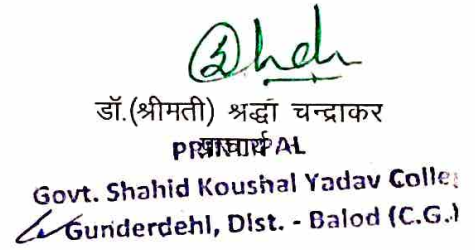 डॉ.(श्रीमती) श्रद्धा चन्द्राकर
प्राचार्य
PRINCIPAL
Govt. Shahid Koushal Yadav Colle
Gunderdehi, Dist. - Balod (C.G.)